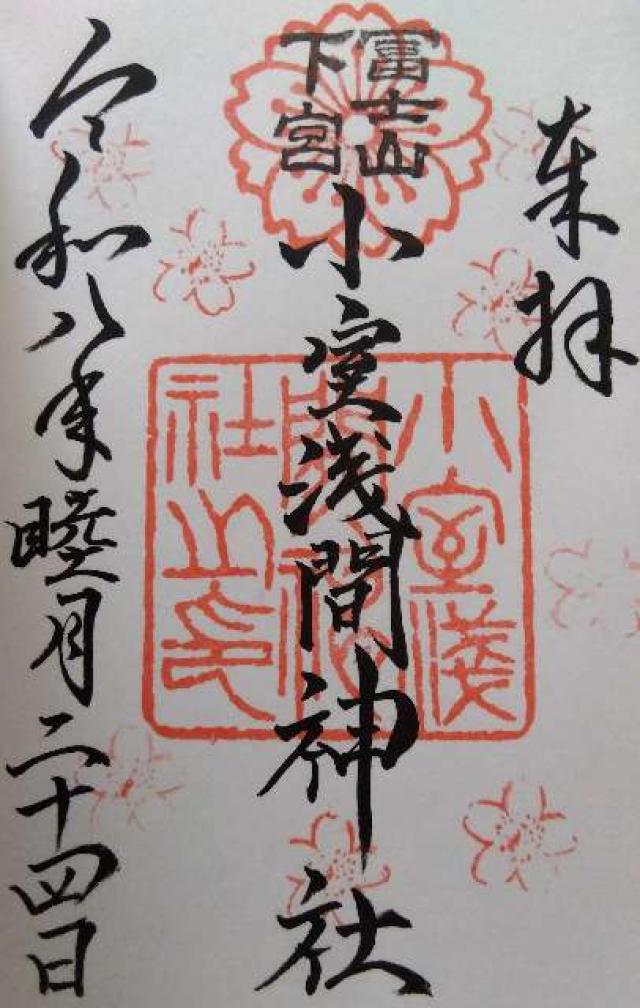 奉拝
冨士山
下宮
小室浅間神社
小室浅
間神
社之印
令和八年睦月二十四日